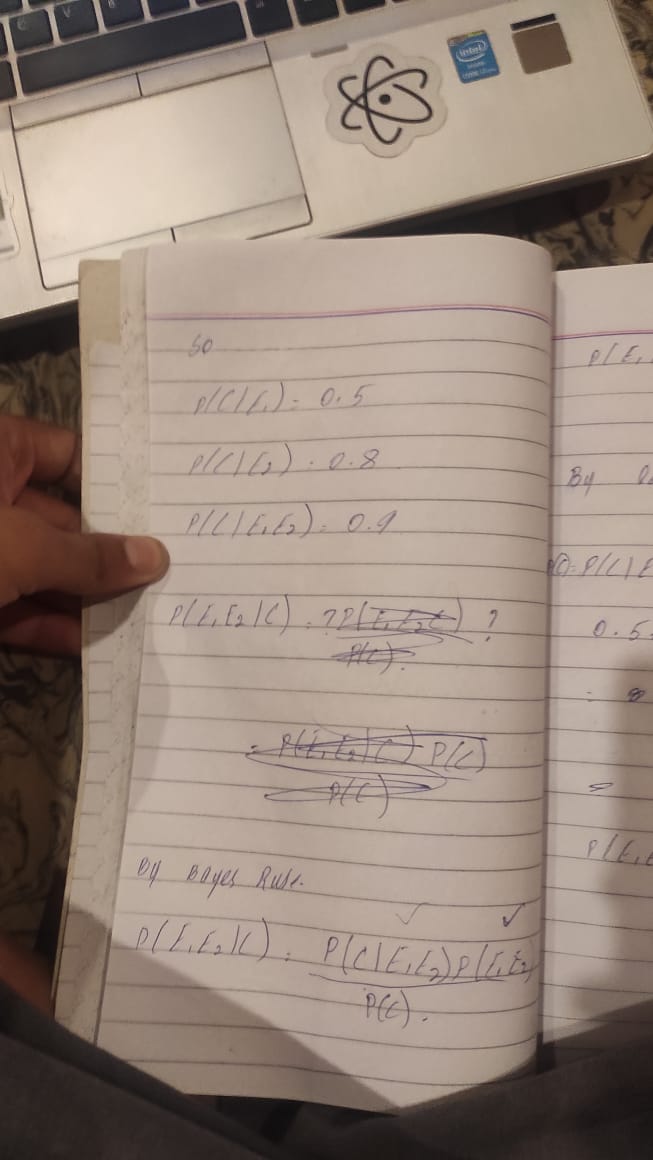 intel
so
P(C|E₁) = 0.5
P(C|E₂) = 0.8
P(C|E₁E₂) = 0.9
P(E₁E₂|C) = ? P(E₁E₂C) ?
P(C)
= P(E₁E₂|C) P(C)
P(C)
By Bayes Rule.
P(E₁E₂|C) = P(C|E₁E₂)P(E₁E₂)
P(C).
P(E₁
By
P(C) = P(C|E
0.5
=
=
P(E₁E